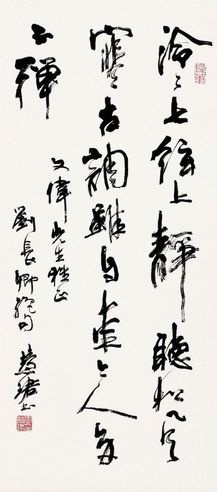 泠〻七絃上靜聽松風
寒古調雖自愛今人多
不彈
文偉先生雅正
劉長卿絕句